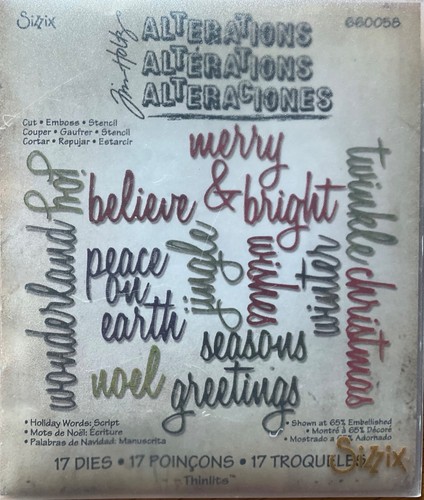 Sizzix
660058
Tim Holtz
ALTERATIONS
ALTÉRATIONS
ALTERACIONES
Cut • Emboss • Stencil
Couper • Gaufrer • Stencil
Cortar • Repujar • Estarcir
merry
& bright
believe
joy
wonderland
twinkle
christmas
peace
on
earth
jingle
wishes
winter
seasons
greetings
noel
• Holiday Words: Script
• Mots de Noël: Écriture
• Palabras de Navidad: Manuscrita
• Shown at 65% Embellished
• Montré à 65% Décoré
• Mostrado a 65% Adornado
Sizzix
17 DIES • 17 POINÇONS • 17 TROQUELES
Thinlits™